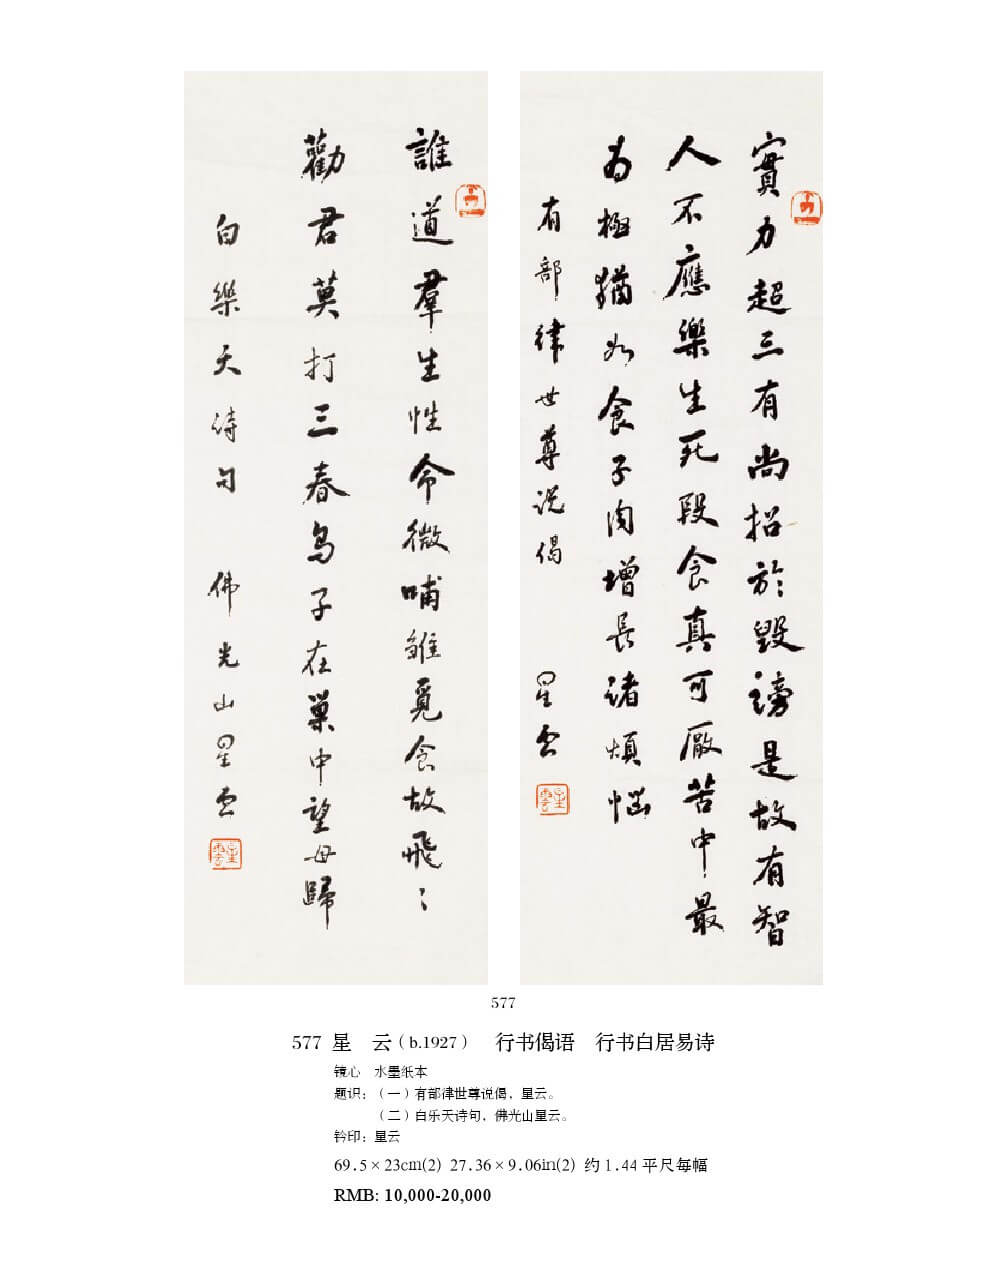 實力超三有尚招於毀謗是故有智
人不應樂生死段食真可厭苦中最
为極猶如食子肉增長諸煩惱
有部律世尊说偈 星云
星雲
誰道羣生性命微哺雛覓食故飛〻
勸君莫打三春鸟子在巢中望母歸
白樂天诗句 佛光山星云
星雲
577
577 星 云（b.1927） 行书偈语 行书白居易诗
镜心 水墨纸本
题识：（一）有部律世尊说偈，星云。
（二）白乐天诗句，佛光山星云。
钤印：星云
69.5×23cm(2) 27.36×9.06in(2) 约1.44平尺每幅
RMB: 10,000-20,000